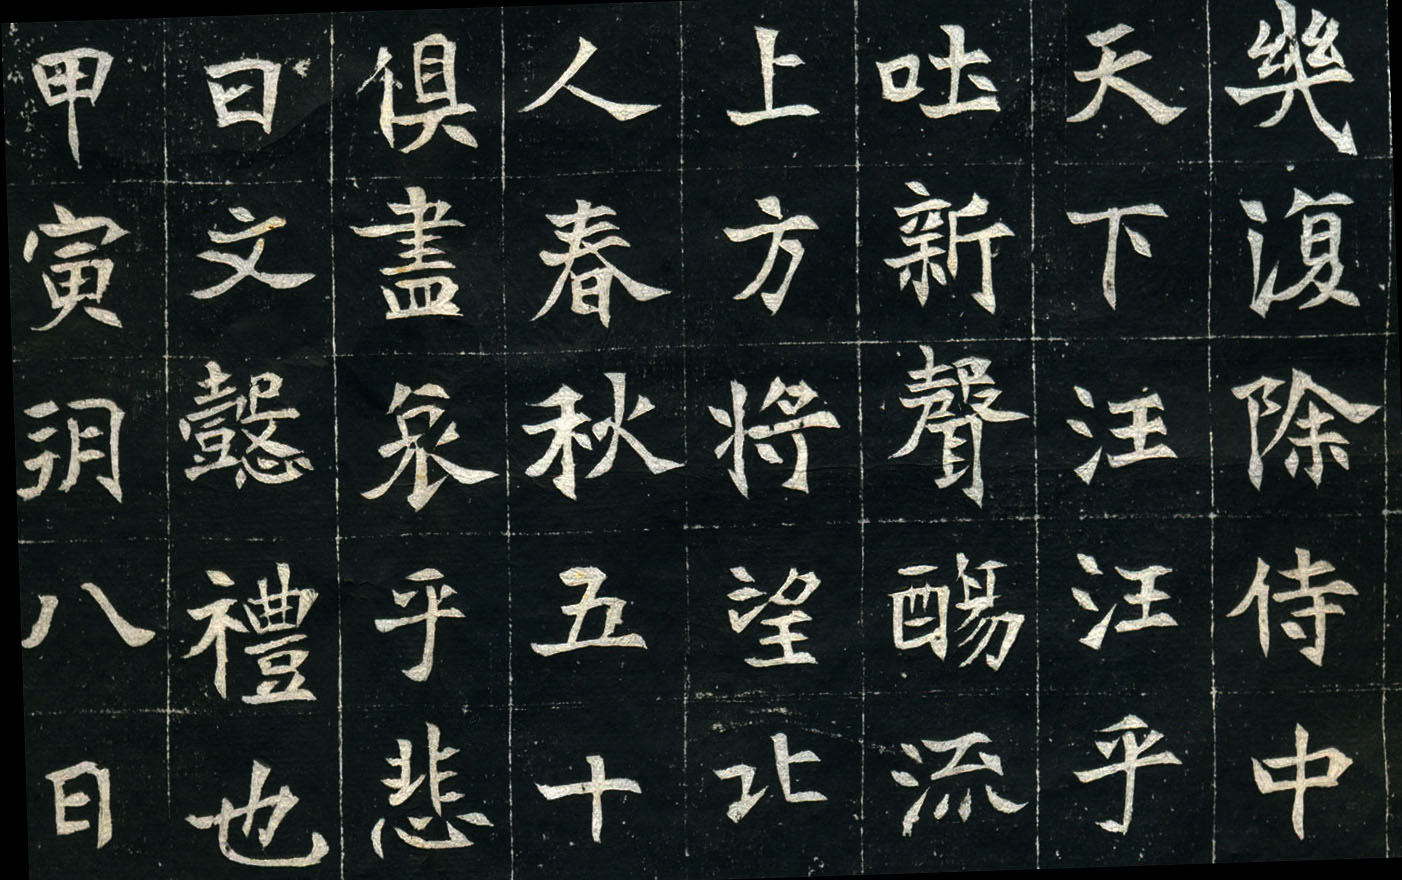 幾復除侍中
天下汪汪乎
吐新聲酾流
上方將望北
人春秋五十
俱盡哀乎悲
曰文懿禮也
甲寅朔八日